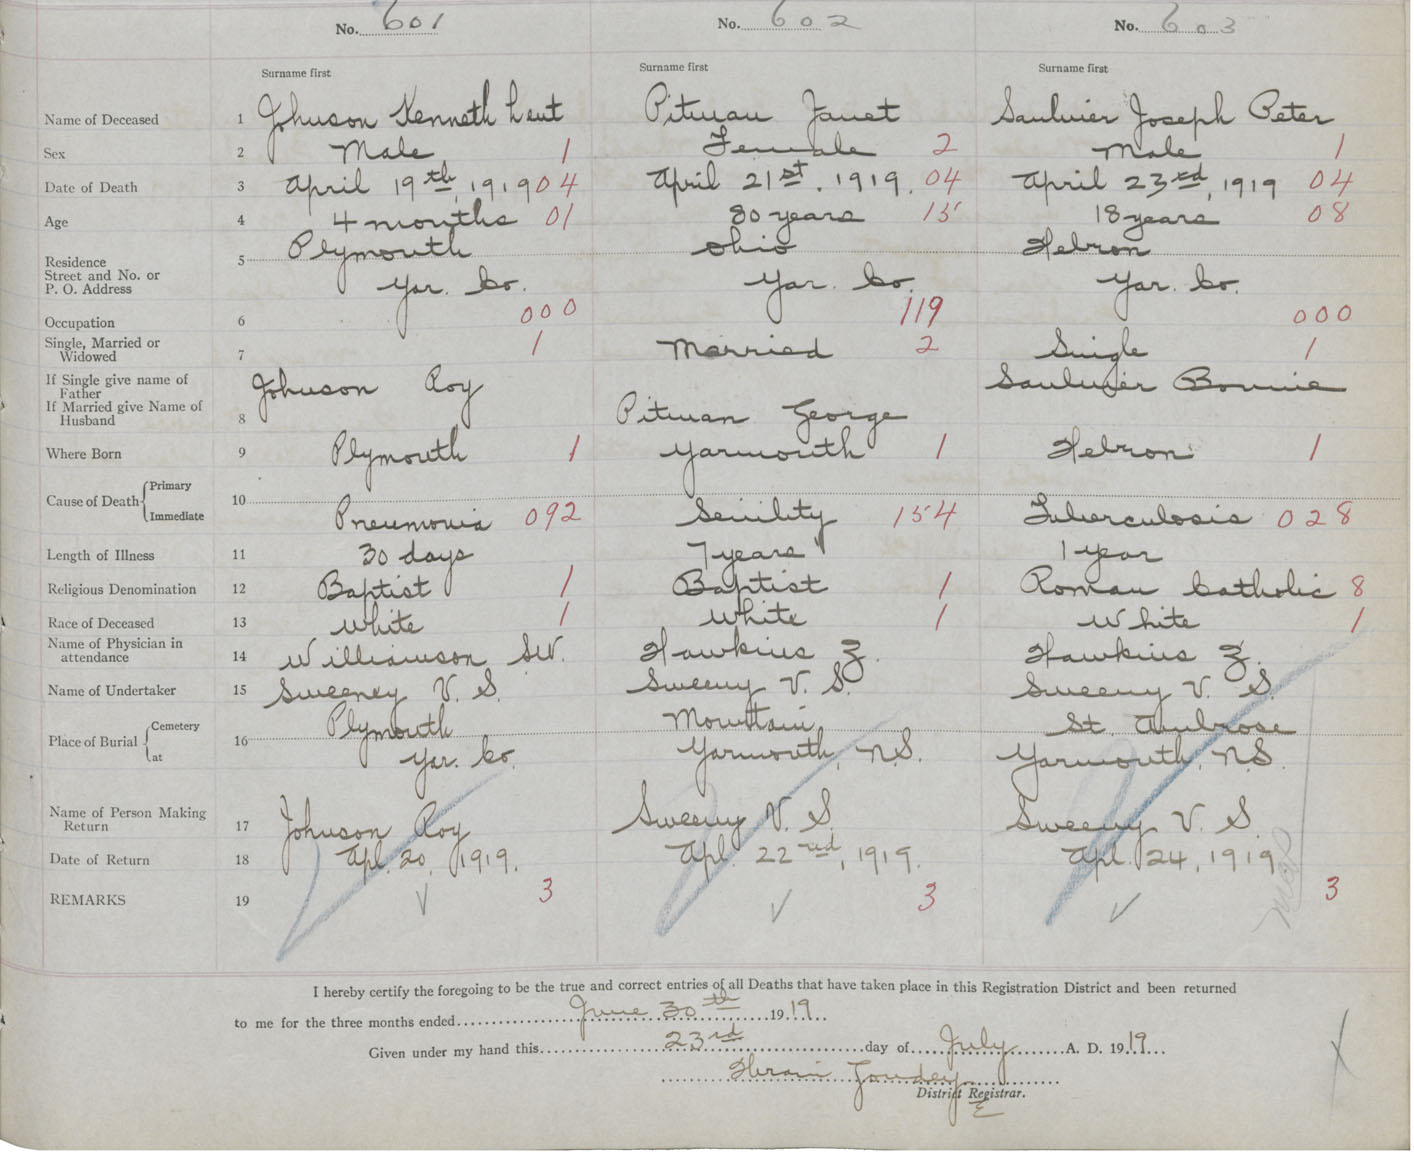 No. 601 No. 602 No. 603
Surname first Surname first Surname first
Name of Deceased 1 Johnson Kenneth Lent Pitman Janet Saulnier Joseph Peter
Sex 2 Male 1 Female 2 Male 1
Date of Death 3 April 19th, 1919 04 April 21st, 1919. 04 April 23rd, 1919 04
Age 4 4 months 01 80 years 15 18 years 08
Residence
Street and No. or
P. O. Address
5 Plymouth Ohio Hebron
Yar. Co. Yar. Co. Yar. Co.
Occupation 6 000 119 000
Single, Married or
Widowed
7 1 Married 2 Single 1
If Single give name of
Father
If Married give Name of
Husband
8 Johnson Roy Pitman George Saulnier Bonnie
Where Born 9 Plymouth 1 Yarmouth 1 Hebron 1
Cause of Death { Primary
Immediate
10 Pneumonia 092 Senility 154 Tuberculosis 028
Length of Illness 11 30 days 7 years 1 year
Religious Denomination 12 Baptist 1 Baptist 1 Roman Catholic 8
Race of Deceased 13 White 1 White 1 White 1
Name of Physician in
attendance
14 Williamson S.W. Hawkins Z. Hawkins Z.
Name of Undertaker 15 Sweeney V. S. Sweeny V. S. Sweeny V. S.
Place of Burial { Cemetery
at
16 Plymouth Mountain St. Ambrose
Yar. Co. Yarmouth, N.S. Yarmouth, N.S.
Name of Person Making
Return
17 Johnson Roy Sweeny V. S. Sweeny V. S.
Date of Return 18 Apl. 20, 1919. Apl. 22nd, 1919. Apl. 24, 1919
REMARKS 19 ✓ 3 ✓ 3 ✓ 3
I hereby certify the foregoing to be the true and correct entries of all Deaths that have taken place in this Registration District and been returned
to me for the three months ended June 30th 1919
Given under my hand this 23rd day of July A. D. 1919
Hiram Goudey
District Registrar.